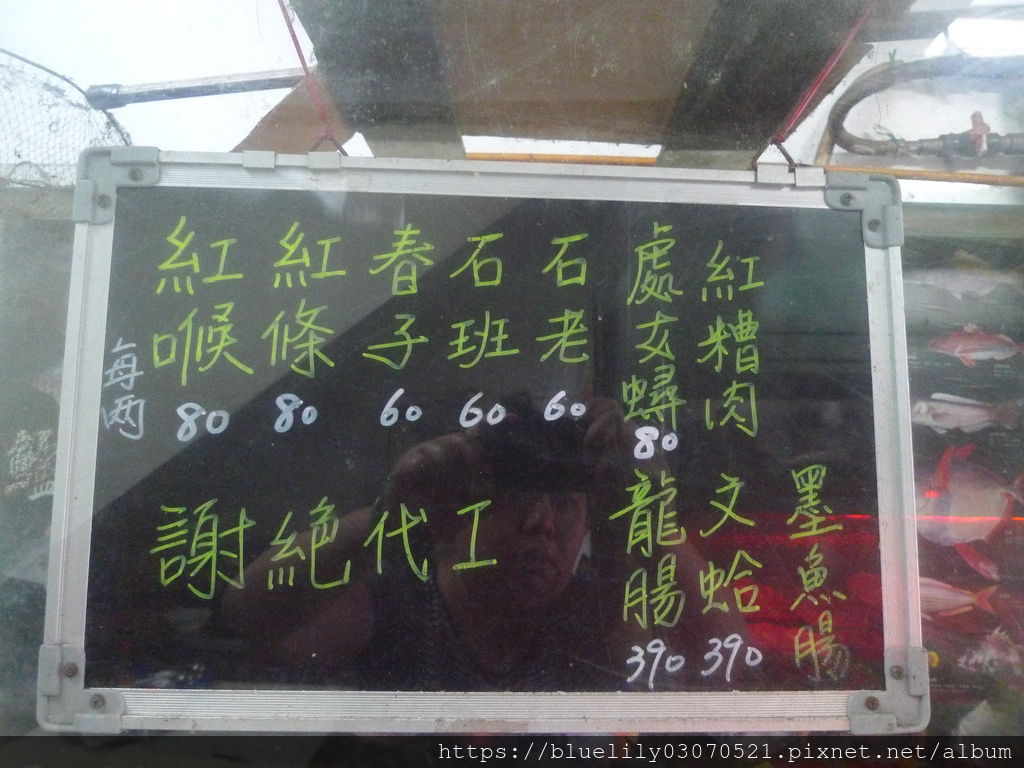 每两
紅喉 80
紅條 80
春子 60
石班 60
石老 60
處女蟳 80
紅糟肉
謝絕代工
龍腸 390
文蛤 390
墨魚腸
https://bluelily03070521.pixnet.net/album